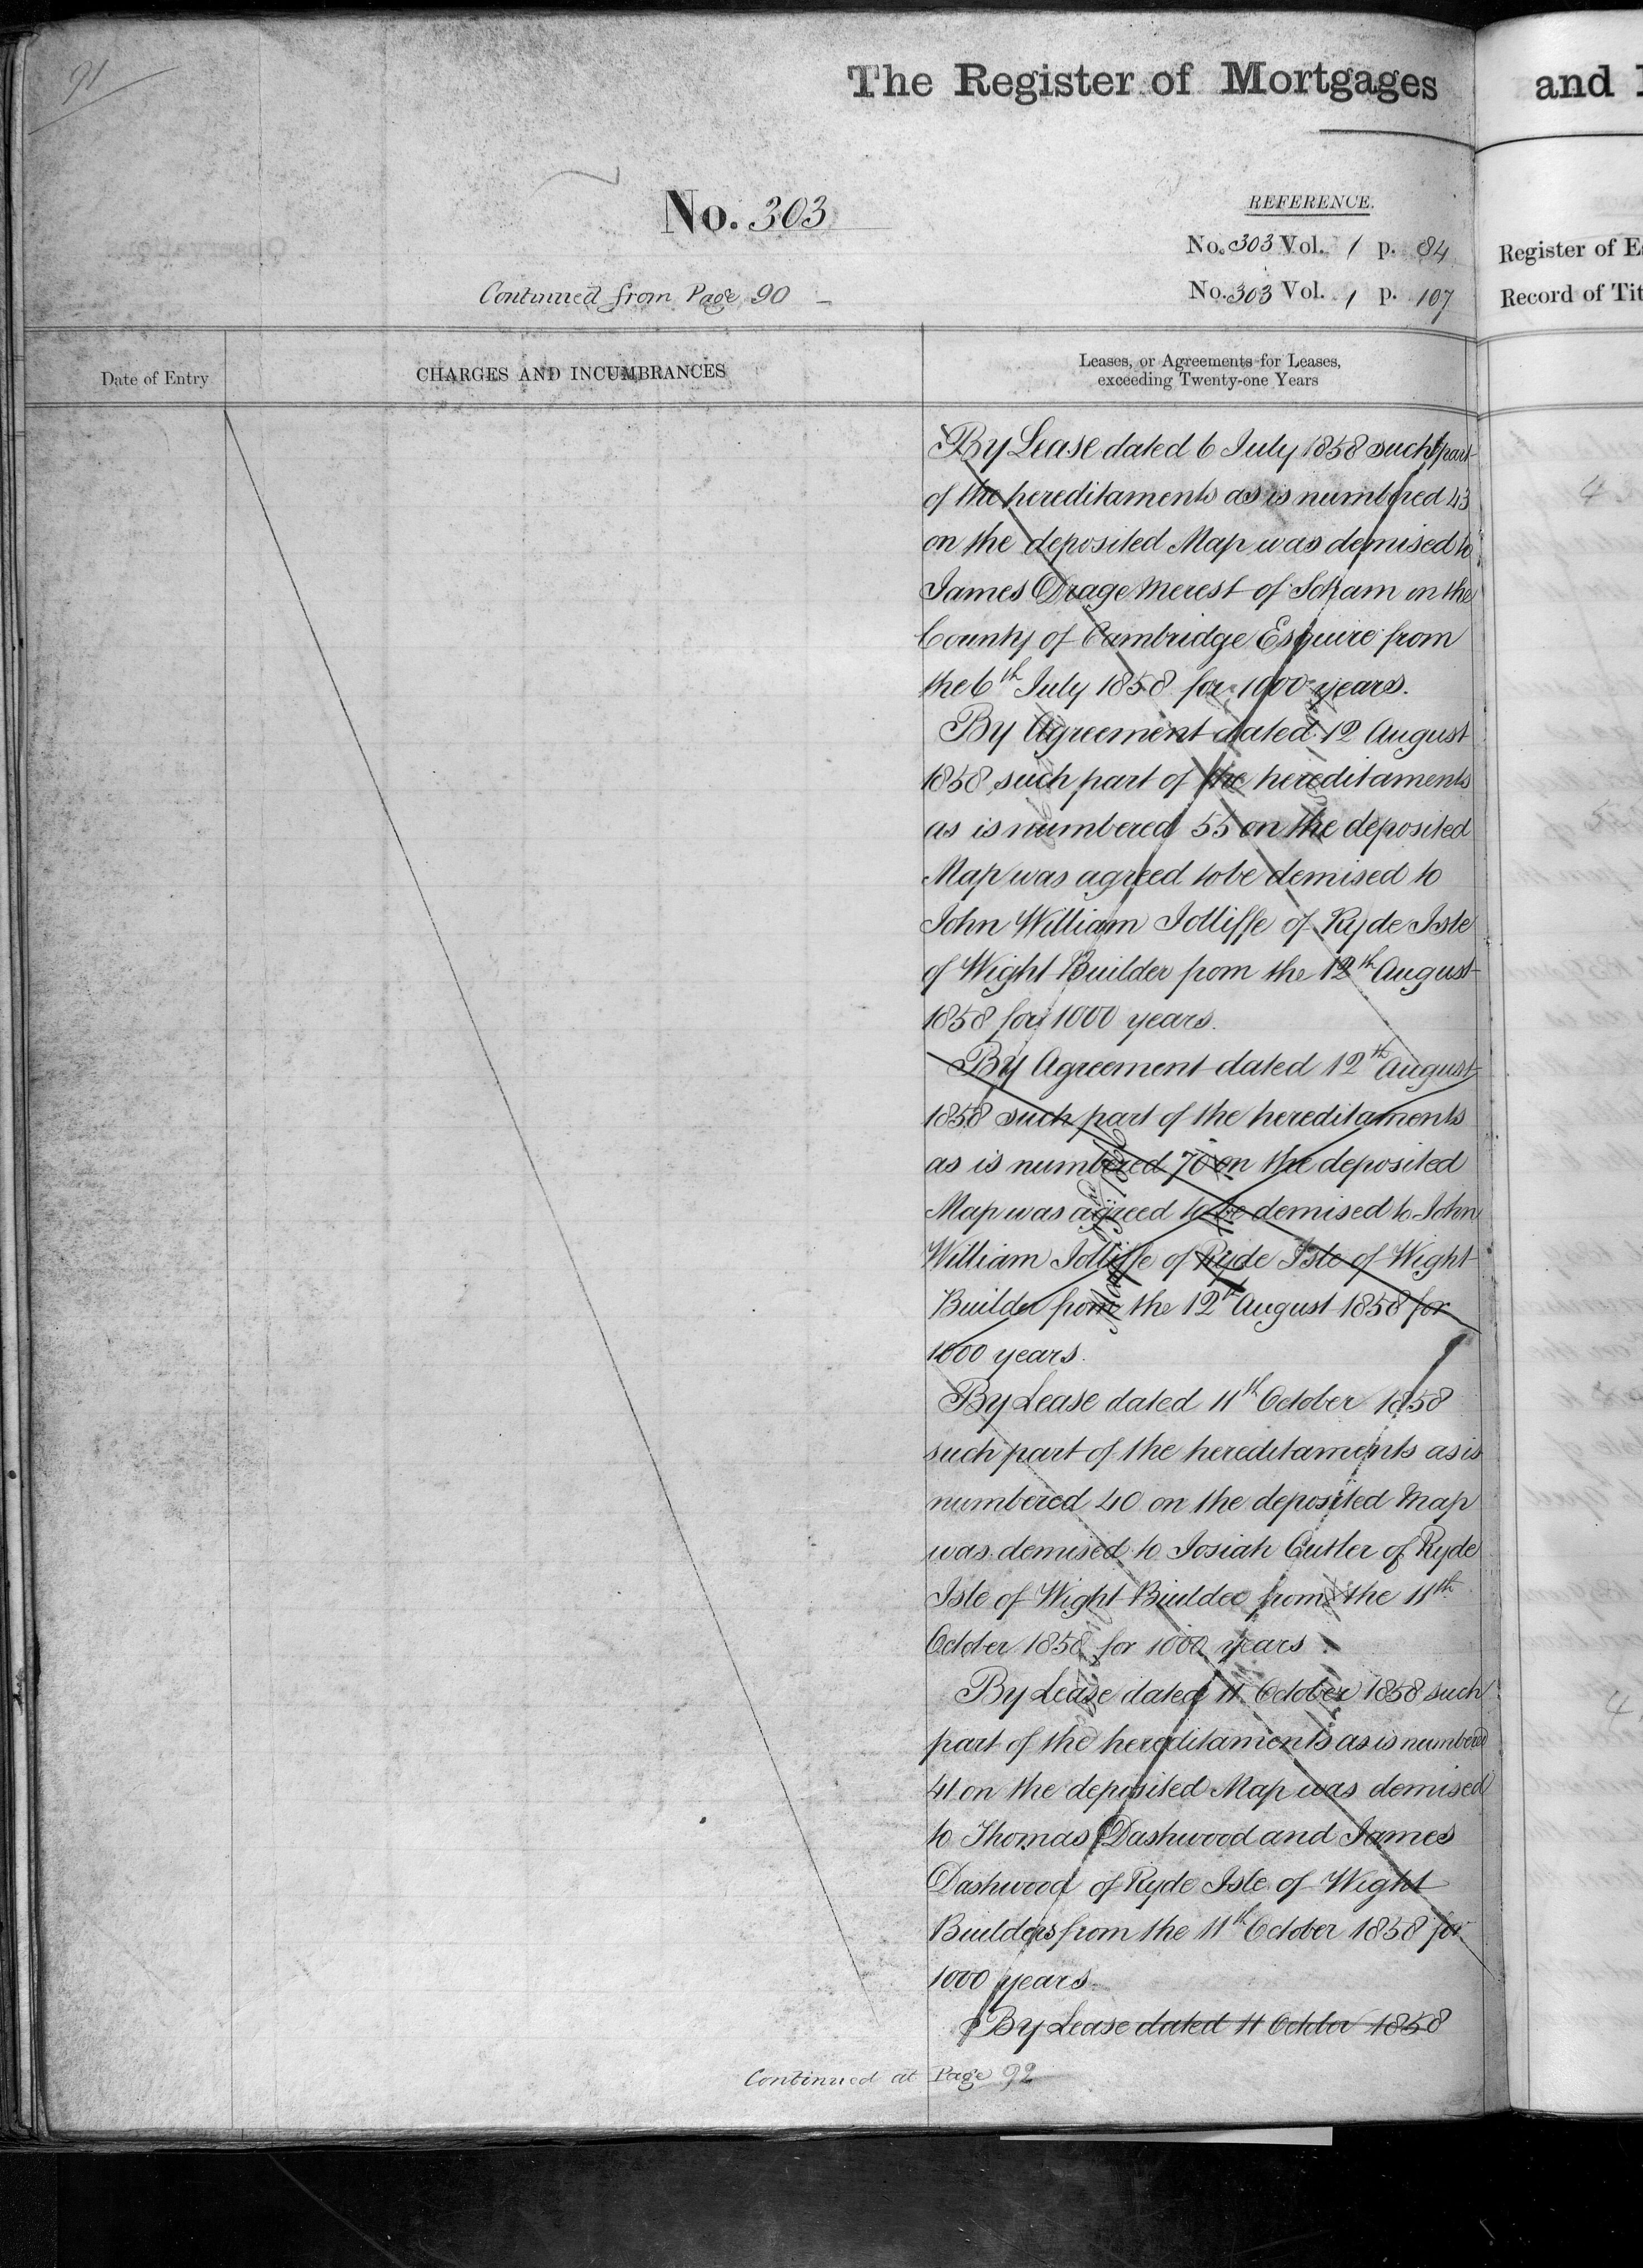 91
The Register of Mortgages
and
No. 303
REFERENCE.
No. 303 Vol. 1 p. 84
Register of Es
Continued from Page 90
No. 303 Vol. 1 p. 107
Record of Tit
Date of Entry
CHARGES AND INCUMBRANCES
Leases, or Agreements for Leases,
exceeding Twenty-one Years
By Lease dated 6 July 1858 such part
of the hereditaments as is numbered 43
on the deposited Map was demised to
James Drage Merest of Soham in the
County of Cambridge Esquire from
the 6th July 1858 for 1000 years.
By Agreement dated 12 August
1858 such part of the hereditaments
as is numbered 55 on the deposited
Map was agreed to be demised to
John William Jolliffe of Ryde Isle
of Wight Builder from the 12th August
1858 for 1000 years.
By Agreement dated 12th August
1858 such part of the hereditaments
as is numbered 70 on the deposited
Map was agreed to be demised to John
William Jolliffe of Ryde Isle of Wight
Builder from the 12th August 1858 for
1000 years.
By Lease dated 11th October 1858
such part of the hereditaments as is
numbered 40 on the deposited Map
was demised to Josiah Cutler of Ryde
Isle of Wight Builder from the 11th
October 1858 for 1000 years
By Lease dated 11 October 1858 such
part of the hereditaments as is numbered
41 on the deposited Map was demised
to Thomas Dashwood and James
Dashwood of Ryde Isle of Wight
Builders from the 11th October 1858 for
1000 years.
By Lease dated 11 October 1858
Continued at Page 92